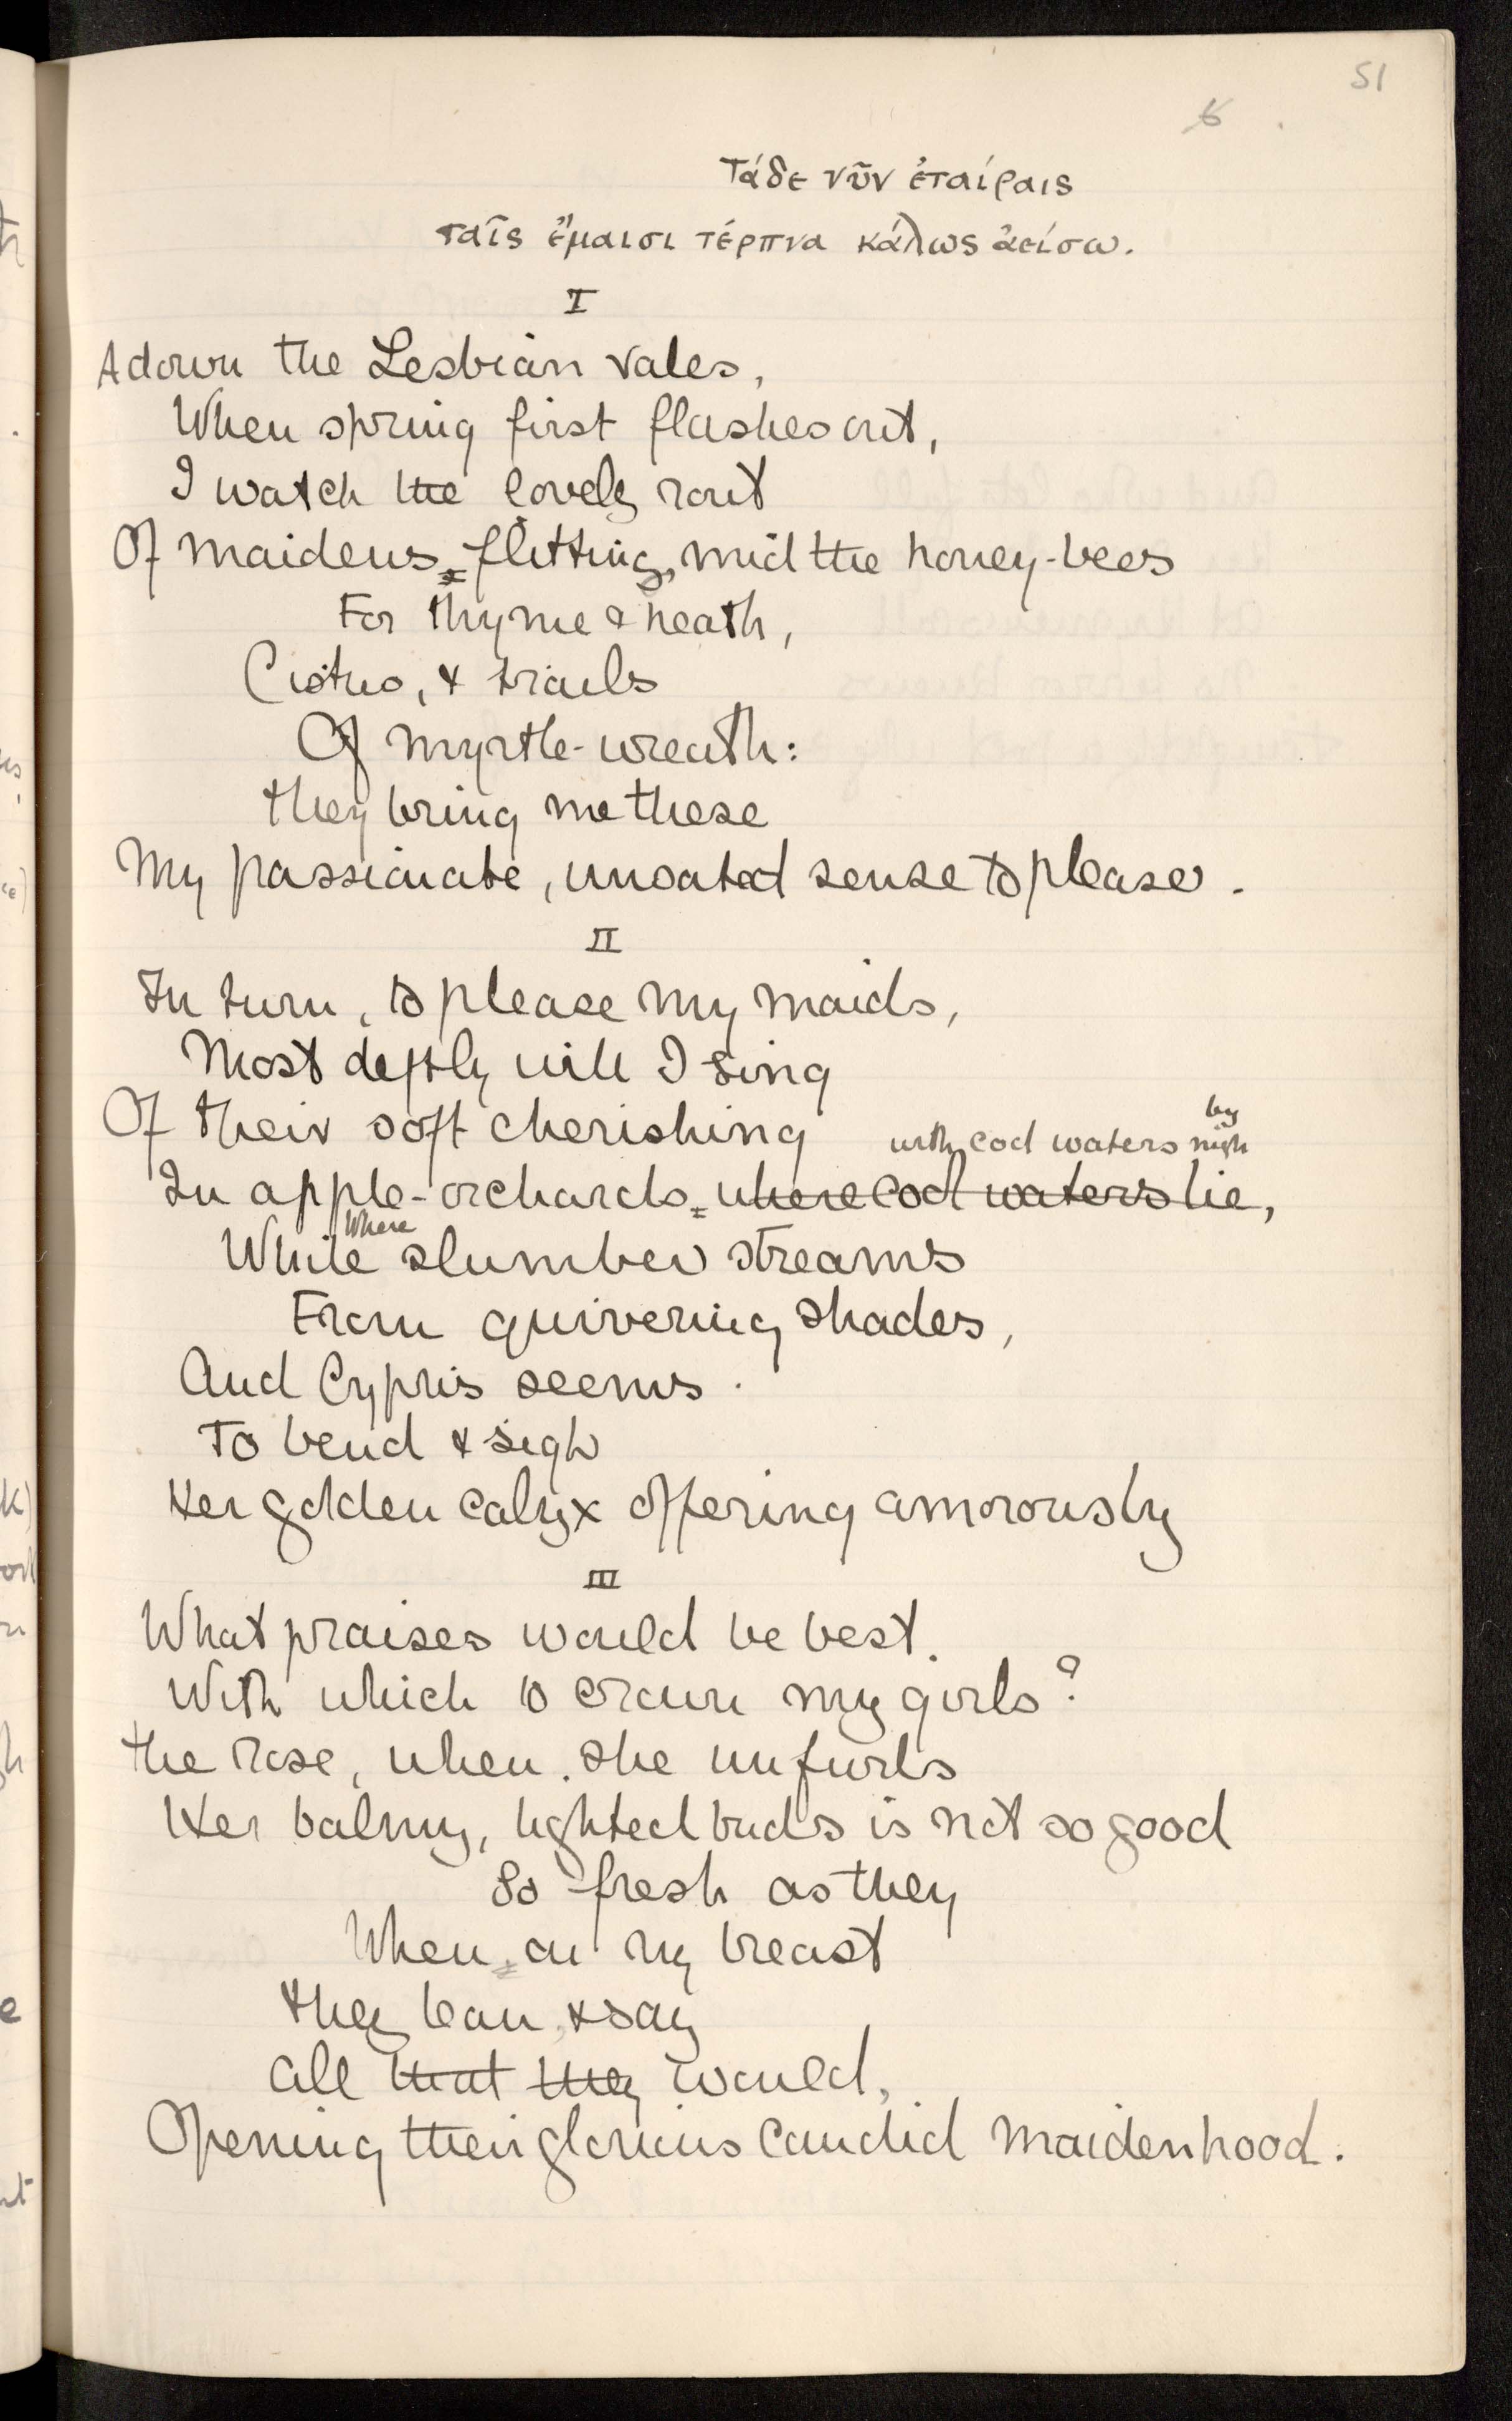 51
6
Τάδε νῦν ἐταίραις
ταῖς ἔμαισι τέρπνα κάλως ἀείσω.
I
Adown the Lesbian vales,
When spring first flashes out,
I watch the lovely rout
Of maidens flitting, mid the honey-bees
For thyme & heath,
Cistus, & trails
Of myrtle-wreath:
They bring me these
My passionate, unsated sense to please.
II
In turn, to please my maids,
Most deftly will I sing
Of their soft cherishing
by
with cool waters nigh
In apple-orchards where cool waters lie,
Where
While slumber streams
From quivering shades,
And Cypris seems
To bend & sigh
Her golden calyx offering amorously
III
What praises would be best
With which to crown my girls?
The rose, when she unfurls
Her balmy, lighted buds is not so good
So fresh as they
When on my breast
They lean, & say
All that they would,
Opening their glorious candid maidenhood.